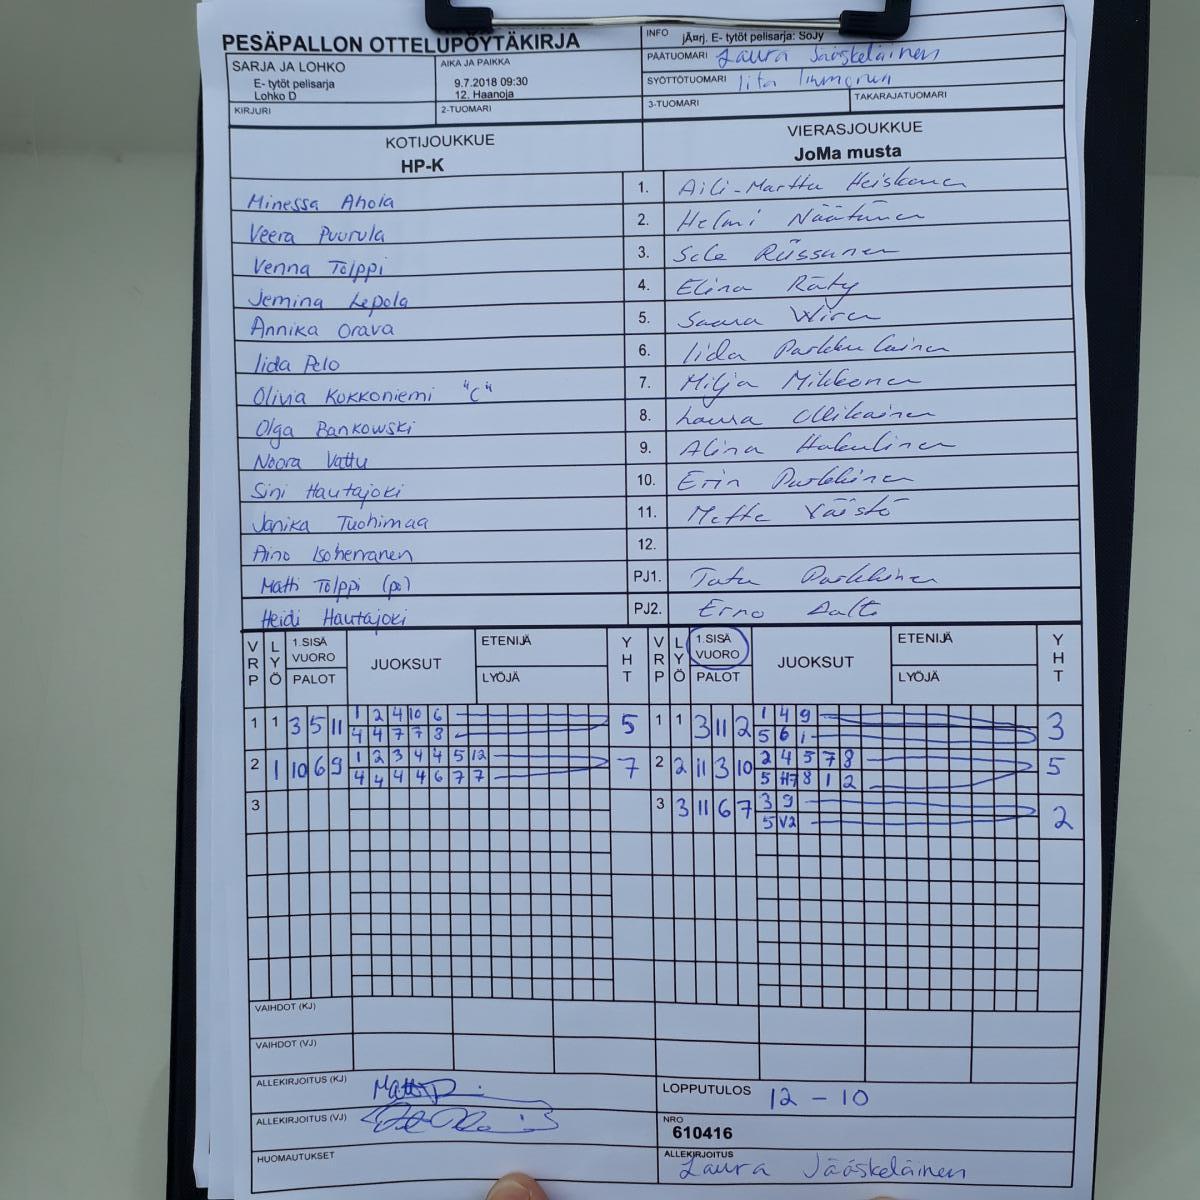 PESÄPALLON OTTELUPÖYTÄKIRJA
INFO jÄ¤rj. E- tytöt pelisarja: SoJy
SARJA JA LOHKO
E- tytöt pelisarja
Lohko D
AIKA JA PAIKKA
9.7.2018 09:30
12. Haanoja
PÄÄTUOMARI Laura Jääskeläinen
SYÖTTÖTUOMARI Iita Immonen
KIRJURI
2-TUOMARI
3-TUOMARI
TAKARAJATUOMARI
KOTIJOUKKUE
HP-K
VIERASJOUKKUE
JoMa musta
Minessa Ahola 1. Aili-Martta Heiskanen
Veera Puurula 2. Helmi Näätänen
Venna Tolppi 3. Sole Riissanen
Jemina Lepola 4. Elina Räty
Annika Orava 5. Saana Wiren
Iida Pelo 6. Iida Parkkulainen
Olivia Kokkoniemi "C" 7. Milja Mikkonen
Olga Bankowski 8. Laura Ollikainen
Noora Vattu 9. Alina Hakulinen
Sini Hautajoki 10. Erin Parkkinen
Janika Tuohimaa 11. Metta Väistö
Aino Isoherranen 12.
Matti Tolppi (pj) PJ1. Tatu Parkkinen
Heidi Hautajoki PJ2. Erno Aalto
VRP LYÖ 1.SISÄ VUORO PALOT JUOKSUT ETENIJÄ LYÖJÄ YHT VRP LYÖ 1.SISÄ VUORO PALOT JUOKSUT ETENIJÄ LYÖJÄ YHT
1 1 3 5 11 1 2 4 10 6 5 1 1 3 11 2 1 4 9 3
4 4 7 7 8 5 6 1
2 1 10 6 9 1 2 3 4 4 5 12 7 2 2 11 3 10 2 4 5 7 8 5
4 4 4 4 6 7 7 5 H7 8 1 2
3 3 3 11 6 7 3 9 2
5 V2
VAIHDOT (KJ)
VAIHDOT (VJ)
ALLEKIRJOITUS (KJ)
LOPPUTULOS 12 - 10
ALLEKIRJOITUS (VJ)
NRO
610416
HUOMAUTUKSET
ALLEKIRJOITUS
Laura Jääskeläinen